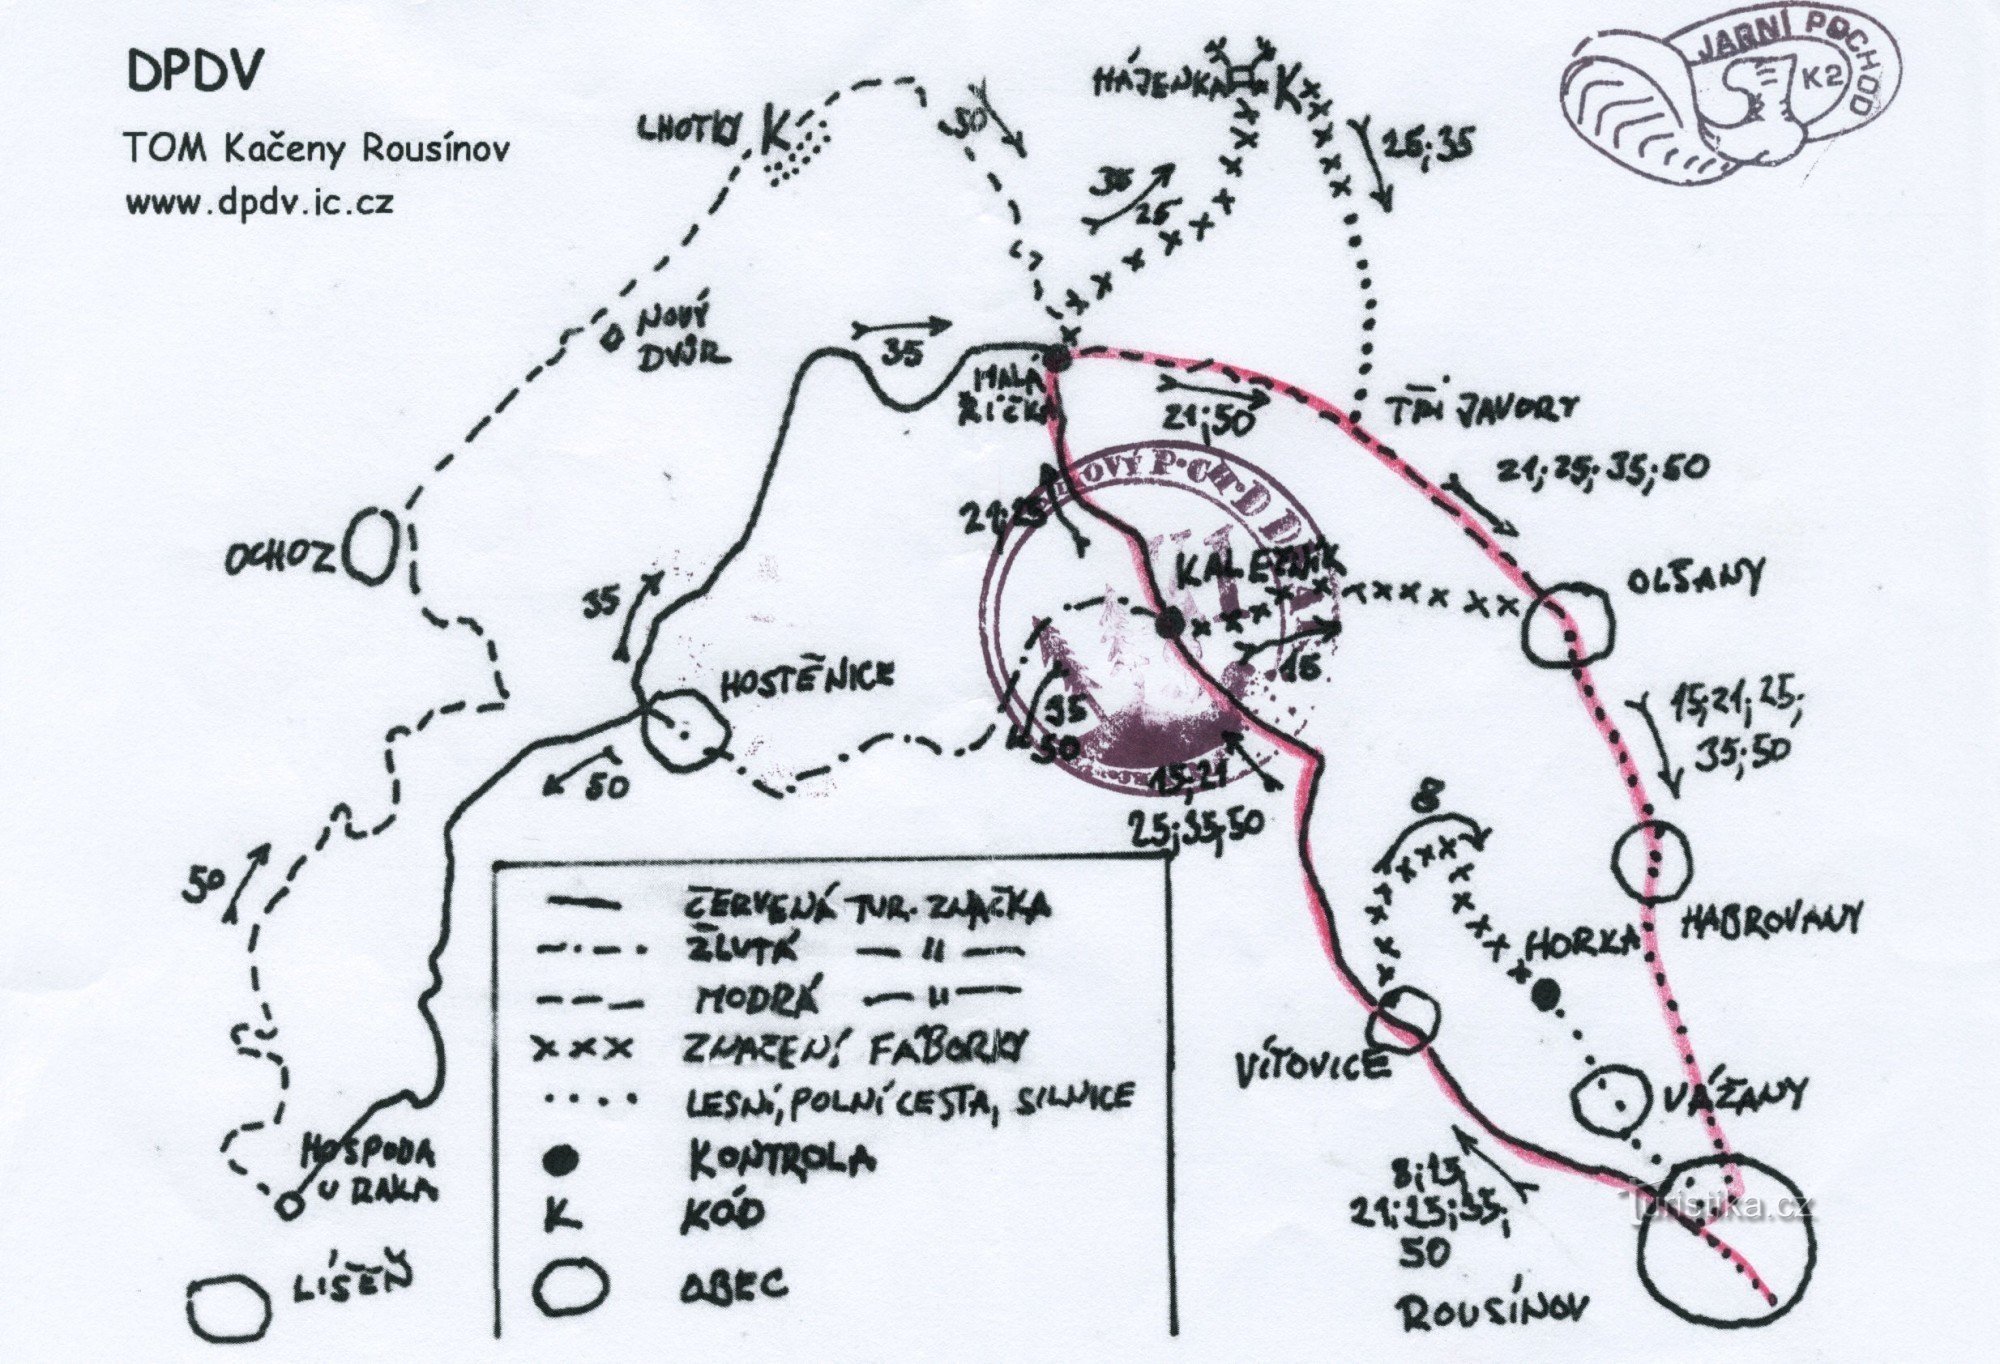 DPDV
TOM Kačeny Rousínov
www.dpdv.ic.cz
JARNÍ POCHOD
K2
HÁJENKA K
LHOTKY K
50
25;35
35
25
NOVÝ
DVŮR
35
MALÁ
ŘÍČKA
21;50
TŘI JAVORY
21;25;35;50
21;25
OCHOZ
KALEČNÍK
OLŠANY
35
HOSTĚNICE
15
35
50
15;21;25;
35;50
50
15;21
25;35;50
8
50
HORKA
HABROVANY
ČERVENÁ TUR. ZNAČKA
ŽLUTÁ — " —
MODRÁ — " —
ZNAČENÍ FÁBORKY
LESNÍ, POLNÍ CESTA, SILNICE
KONTROLA
K KÓD
OBEC
VÍTOVICE
VÁŽANY
HOSPODA
U RAKA
8;15
21;25;35;
50
Turistika.cz
LÍŠEŇ
ROUSÍNOV